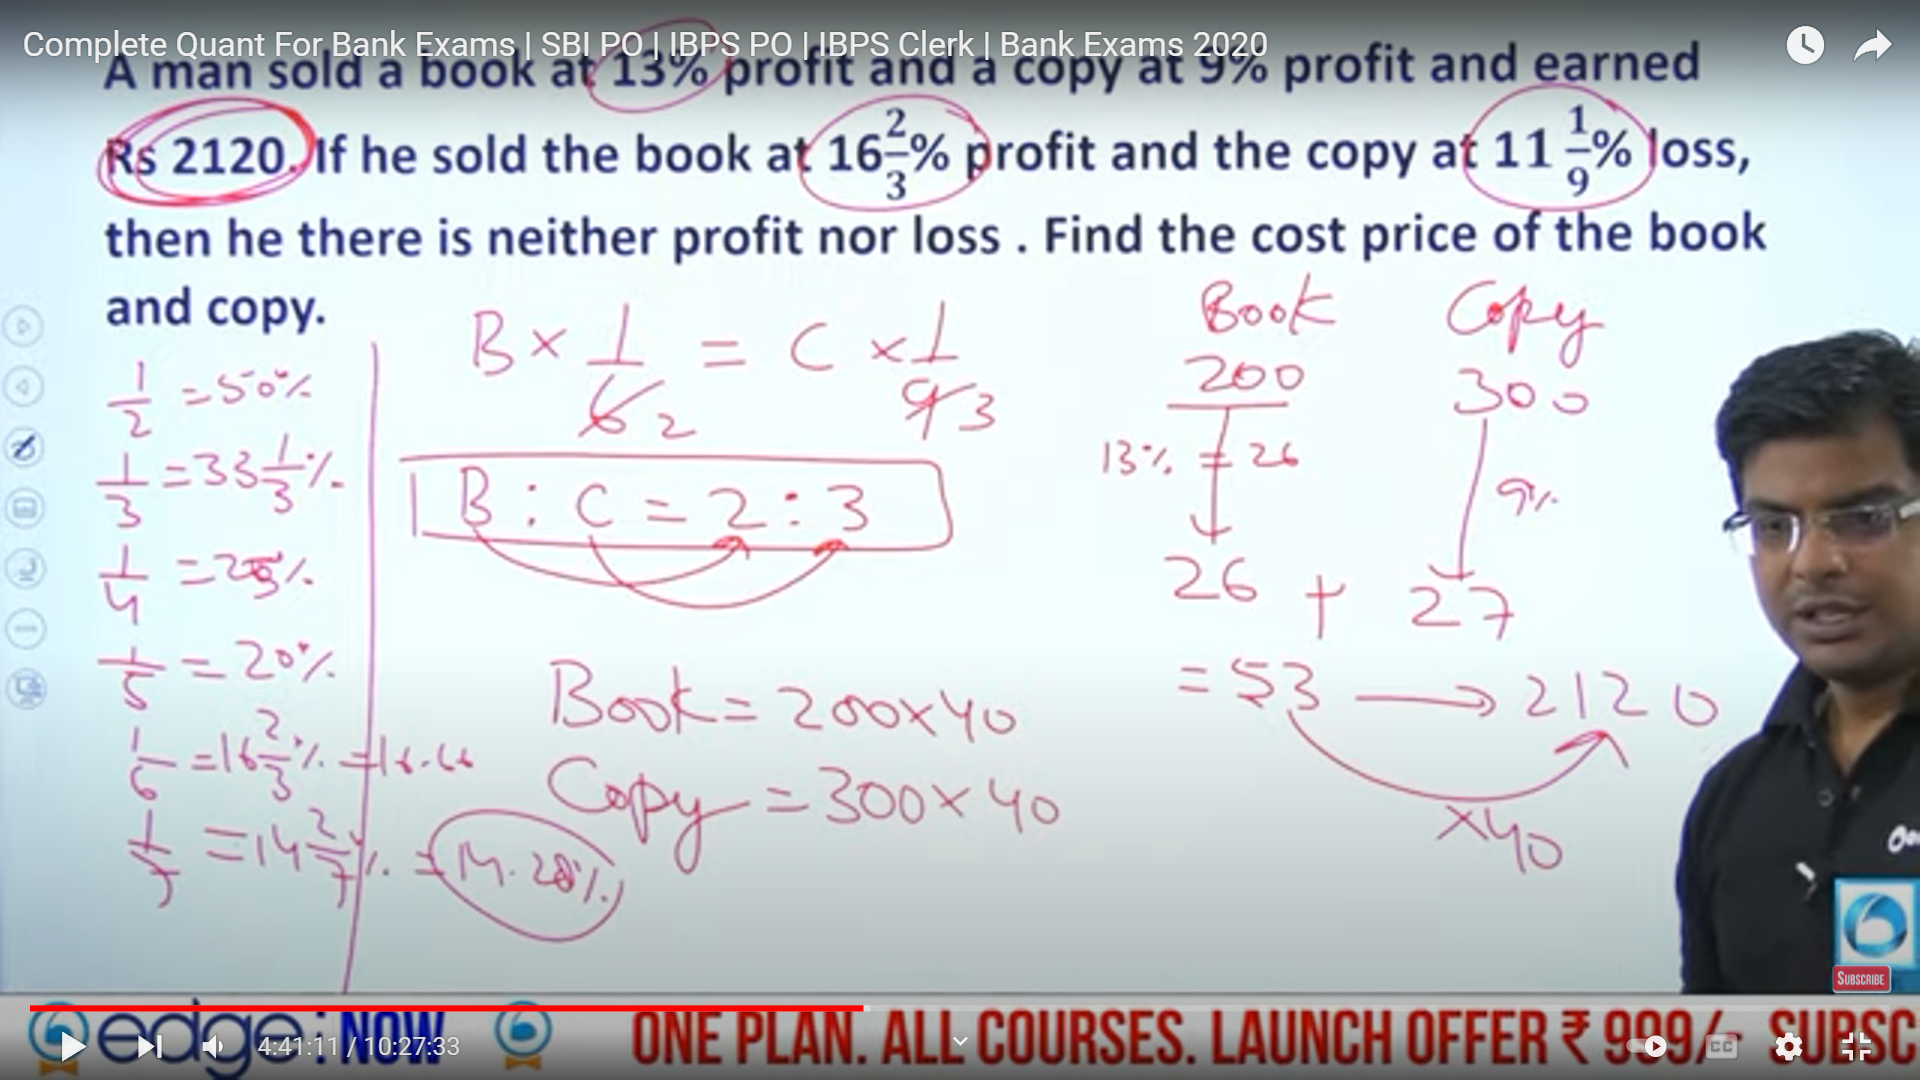 Complete Quant For Bank Exams | SBI PO | IBPS PO | IBPS Clerk | Bank Exams 2020
A man sold a book at 13% profit and a copy at 9% profit and earned
Rs 2120. If he sold the book at 16 2/3% profit and the copy at 11 1/9% loss,
then he there is neither profit nor loss . Find the cost price of the book
and copy.
1/2 = 50%
1/3 = 33 1/3 %
1/4 = 25%
1/5 = 20%
1/6 = 16 2/3 % = 16.66
1/7 = 14 2/7 % = 14.28%
B × 1/6 = C × 1/9
2 3
B : C = 2 : 3
Book = 200×40
Copy = 300×40
Book Copy
200 300
13% = 26 9%
26 + 27
= 53 → 2120
×40
SUBSCRIBE
edge NOW ONE PLAN. ALL COURSES. LAUNCH OFFER ₹ 999/- SUBSC
4:41:11 / 10:27:33
CC